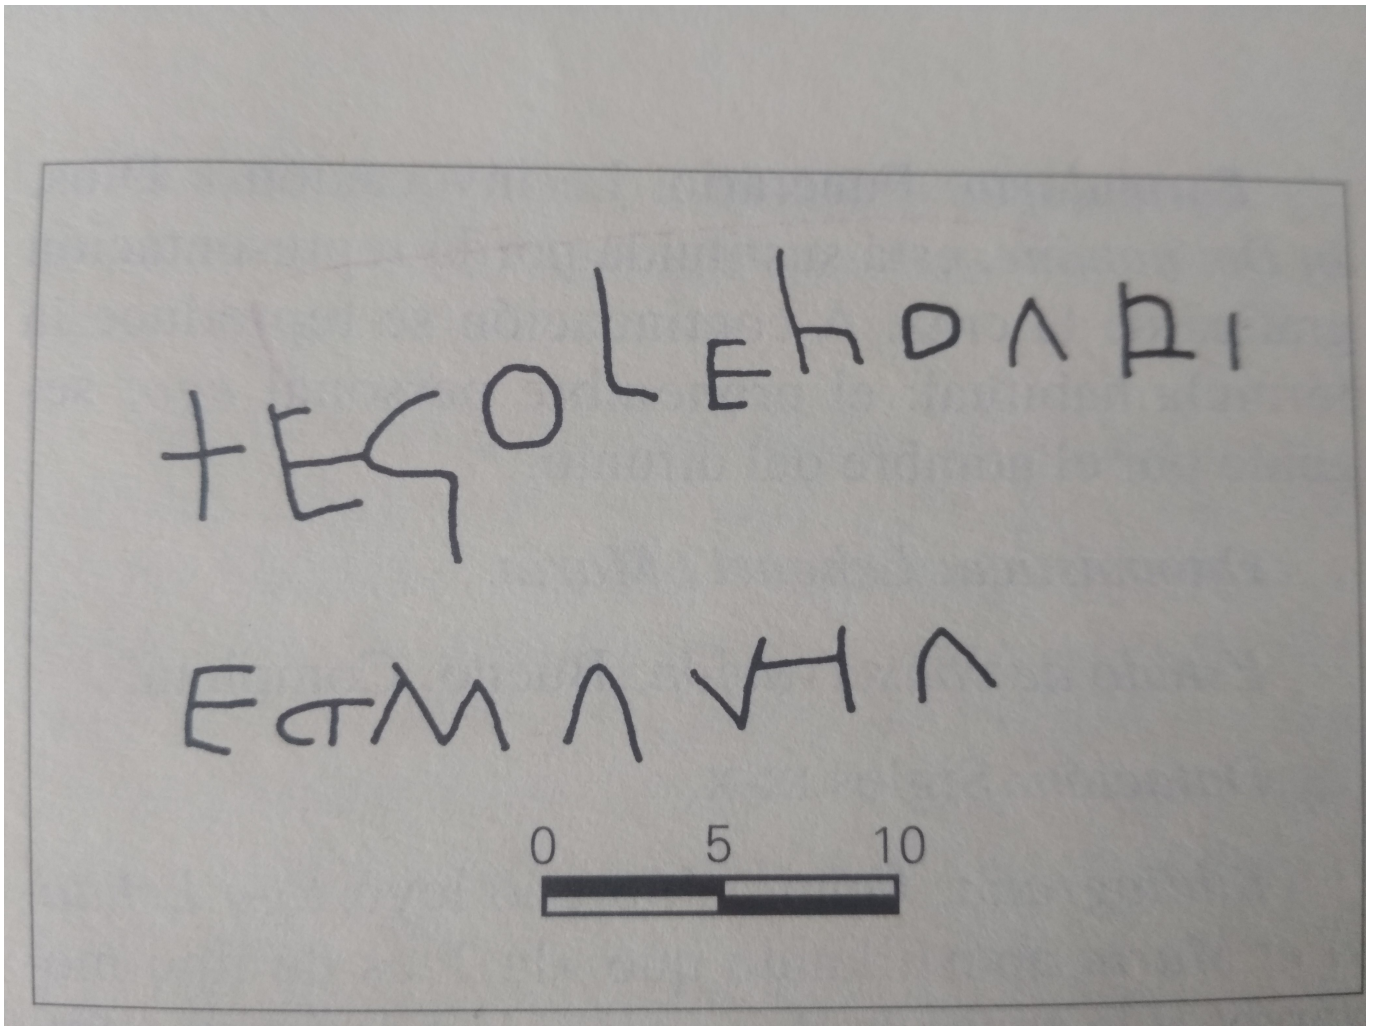 +EGOLEhDΛRI
ETMΛVHΛ
0 5 10